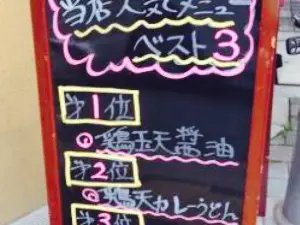 当店人気メニュー
ベスト3
第1位
鶏玉天醤油
第2位
鶏天カレーうどん
第3位